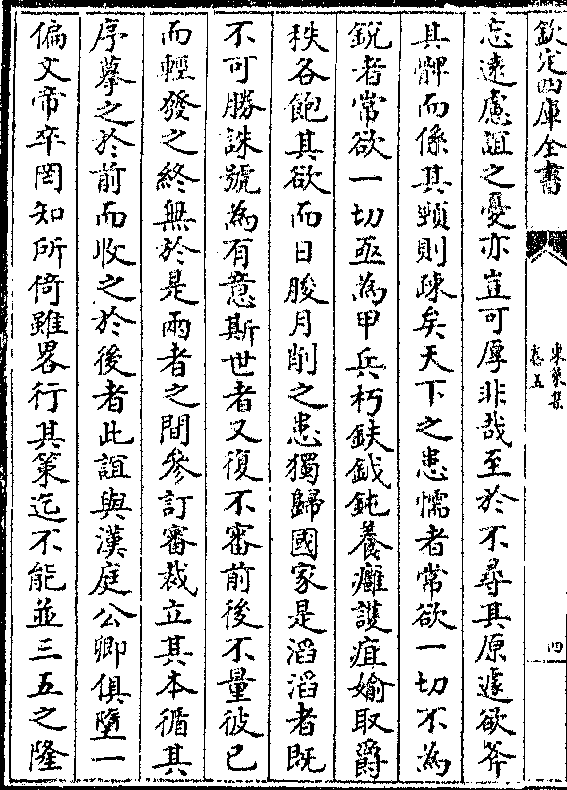 欽定四庫全書
東萊集
卷五
四
忘遠慮誼之憂亦豈可厚非哉至於不尋其原遽欲斧
其髀而係其頸則疎矣天下之患懦者常欲一切不為
鋭者常欲一切亟為甲兵朽鈇鉞鈍養癰護疽媮取爵
秩各飽其欲而日朘月削之患獨歸國家是滔滔者既
不可勝誅號為有意斯世者又復不審前後不量彼已
而輕發之終無於是兩者之間參訂審裁立其本循其
序摹之於前而收之於後者此誼與漢庭公卿俱墮一
偏文帝卒罔知所倚雖畧行其策迄不能並三五之隆